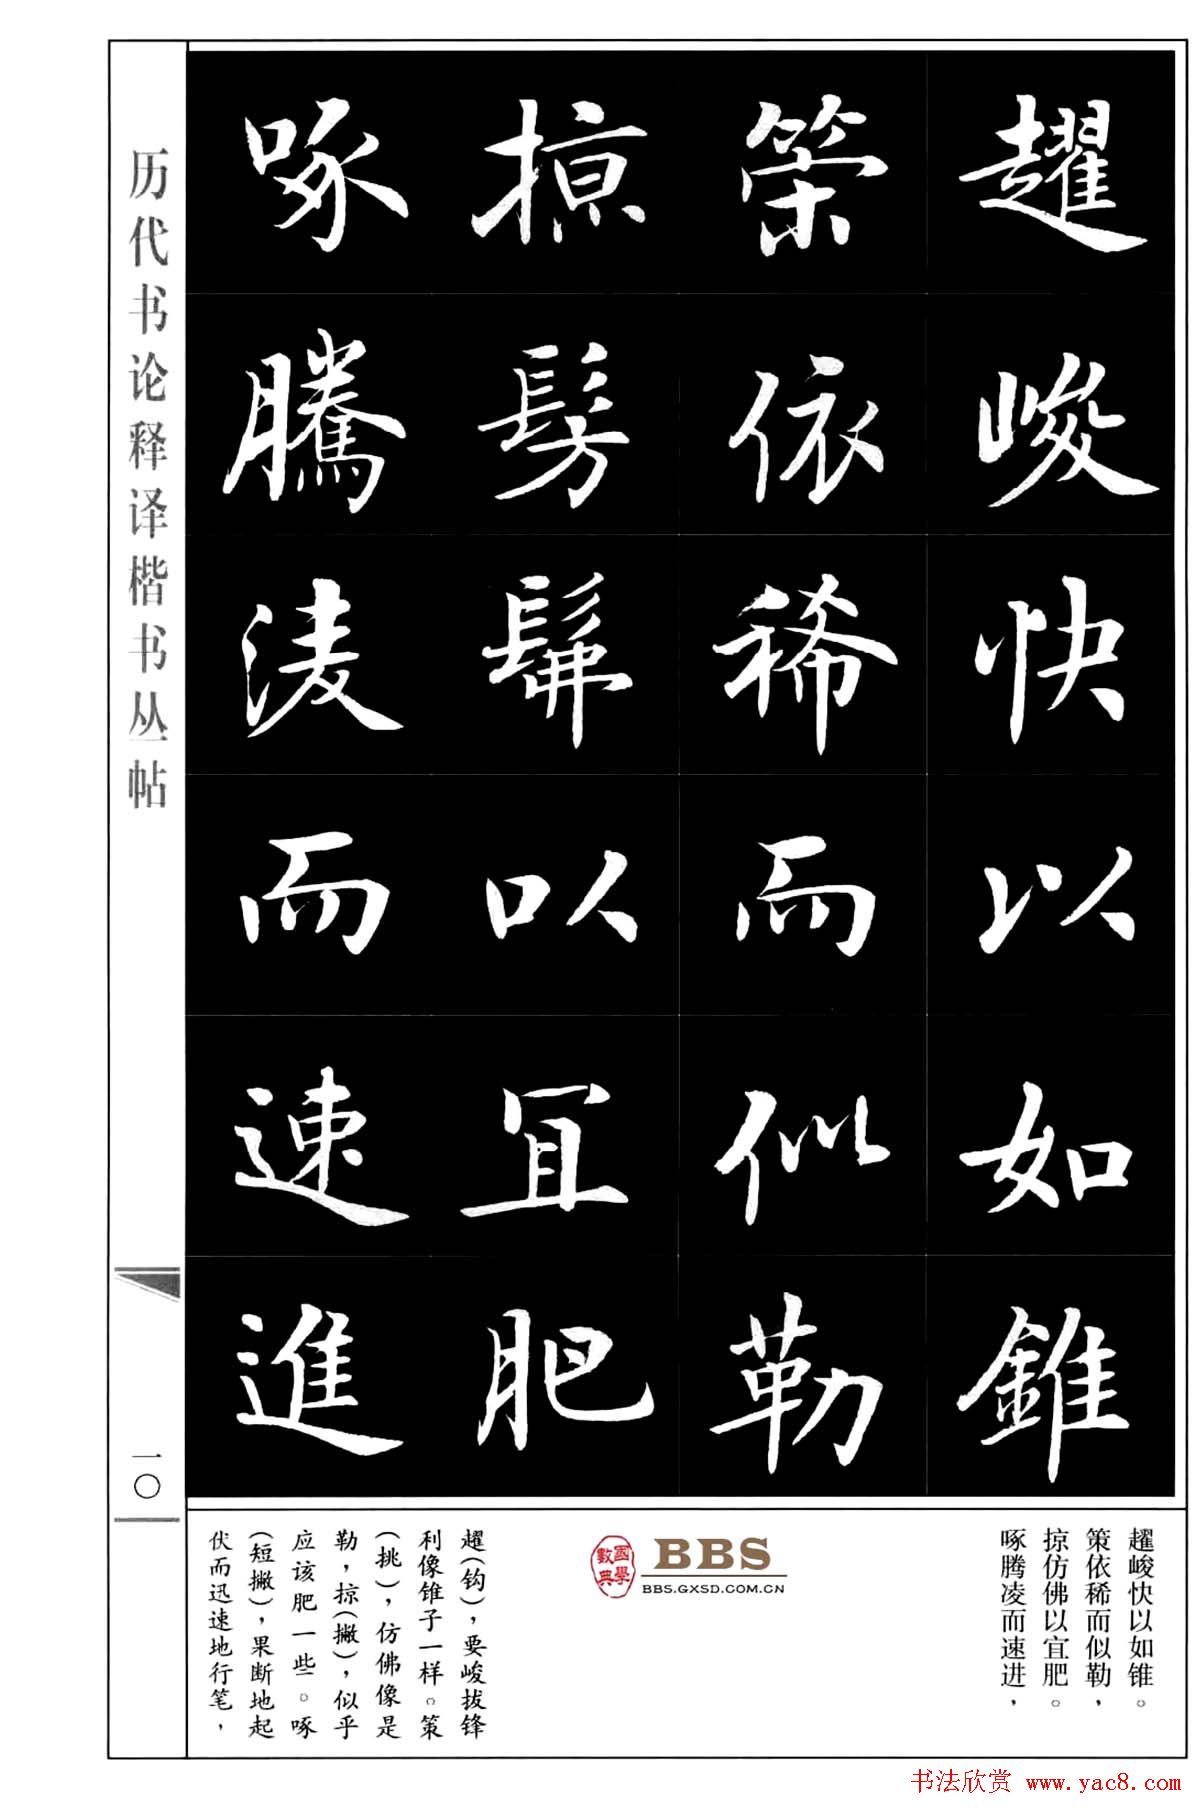 趯峻快以如錐
策依稀而似勒
掠髣髴以宜肥
啄騰淩而速進
趯峻快以如锥。
策依稀而似勒，
掠仿佛以宜肥。
啄腾凌而速进，
國學數典
BBS
BBS.GXSD.COM.CN
趯(钩)，要峻拔锋
利像锥子一样。策
(挑)，仿佛像是
勒，掠(撇)，似乎
应该肥一些。啄
(短撇)，果断地起
伏而迅速地行笔，
历代书论释译楷书丛帖
一〇
书法欣赏 www.yac8.com